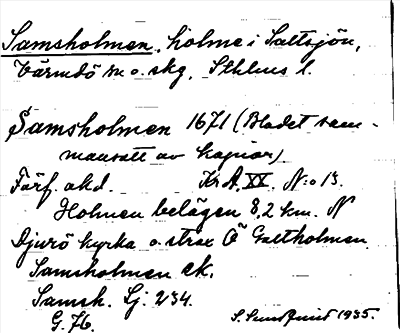 Samsholmen, holme i Saltsjön,
Värmdö sn o. skg, Sthlms l.
Samsholmen 1671 (Bladet sam-
mansatt av kopior).
Förf. okd. Kr A XX. N:o 13.
Holmen belägen 8,2 km. N
Djurö kyrka o. strax Ö Galtholmen.
Samsholmen ek.
Samsh. Sj. 234.
G. 76. S. Sundquist 1935.